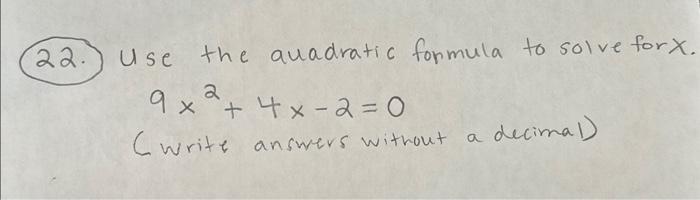 22. Use the quadratic formula to solve for x.
9x² + 4x - 2 = 0
(write answers without a decimal)